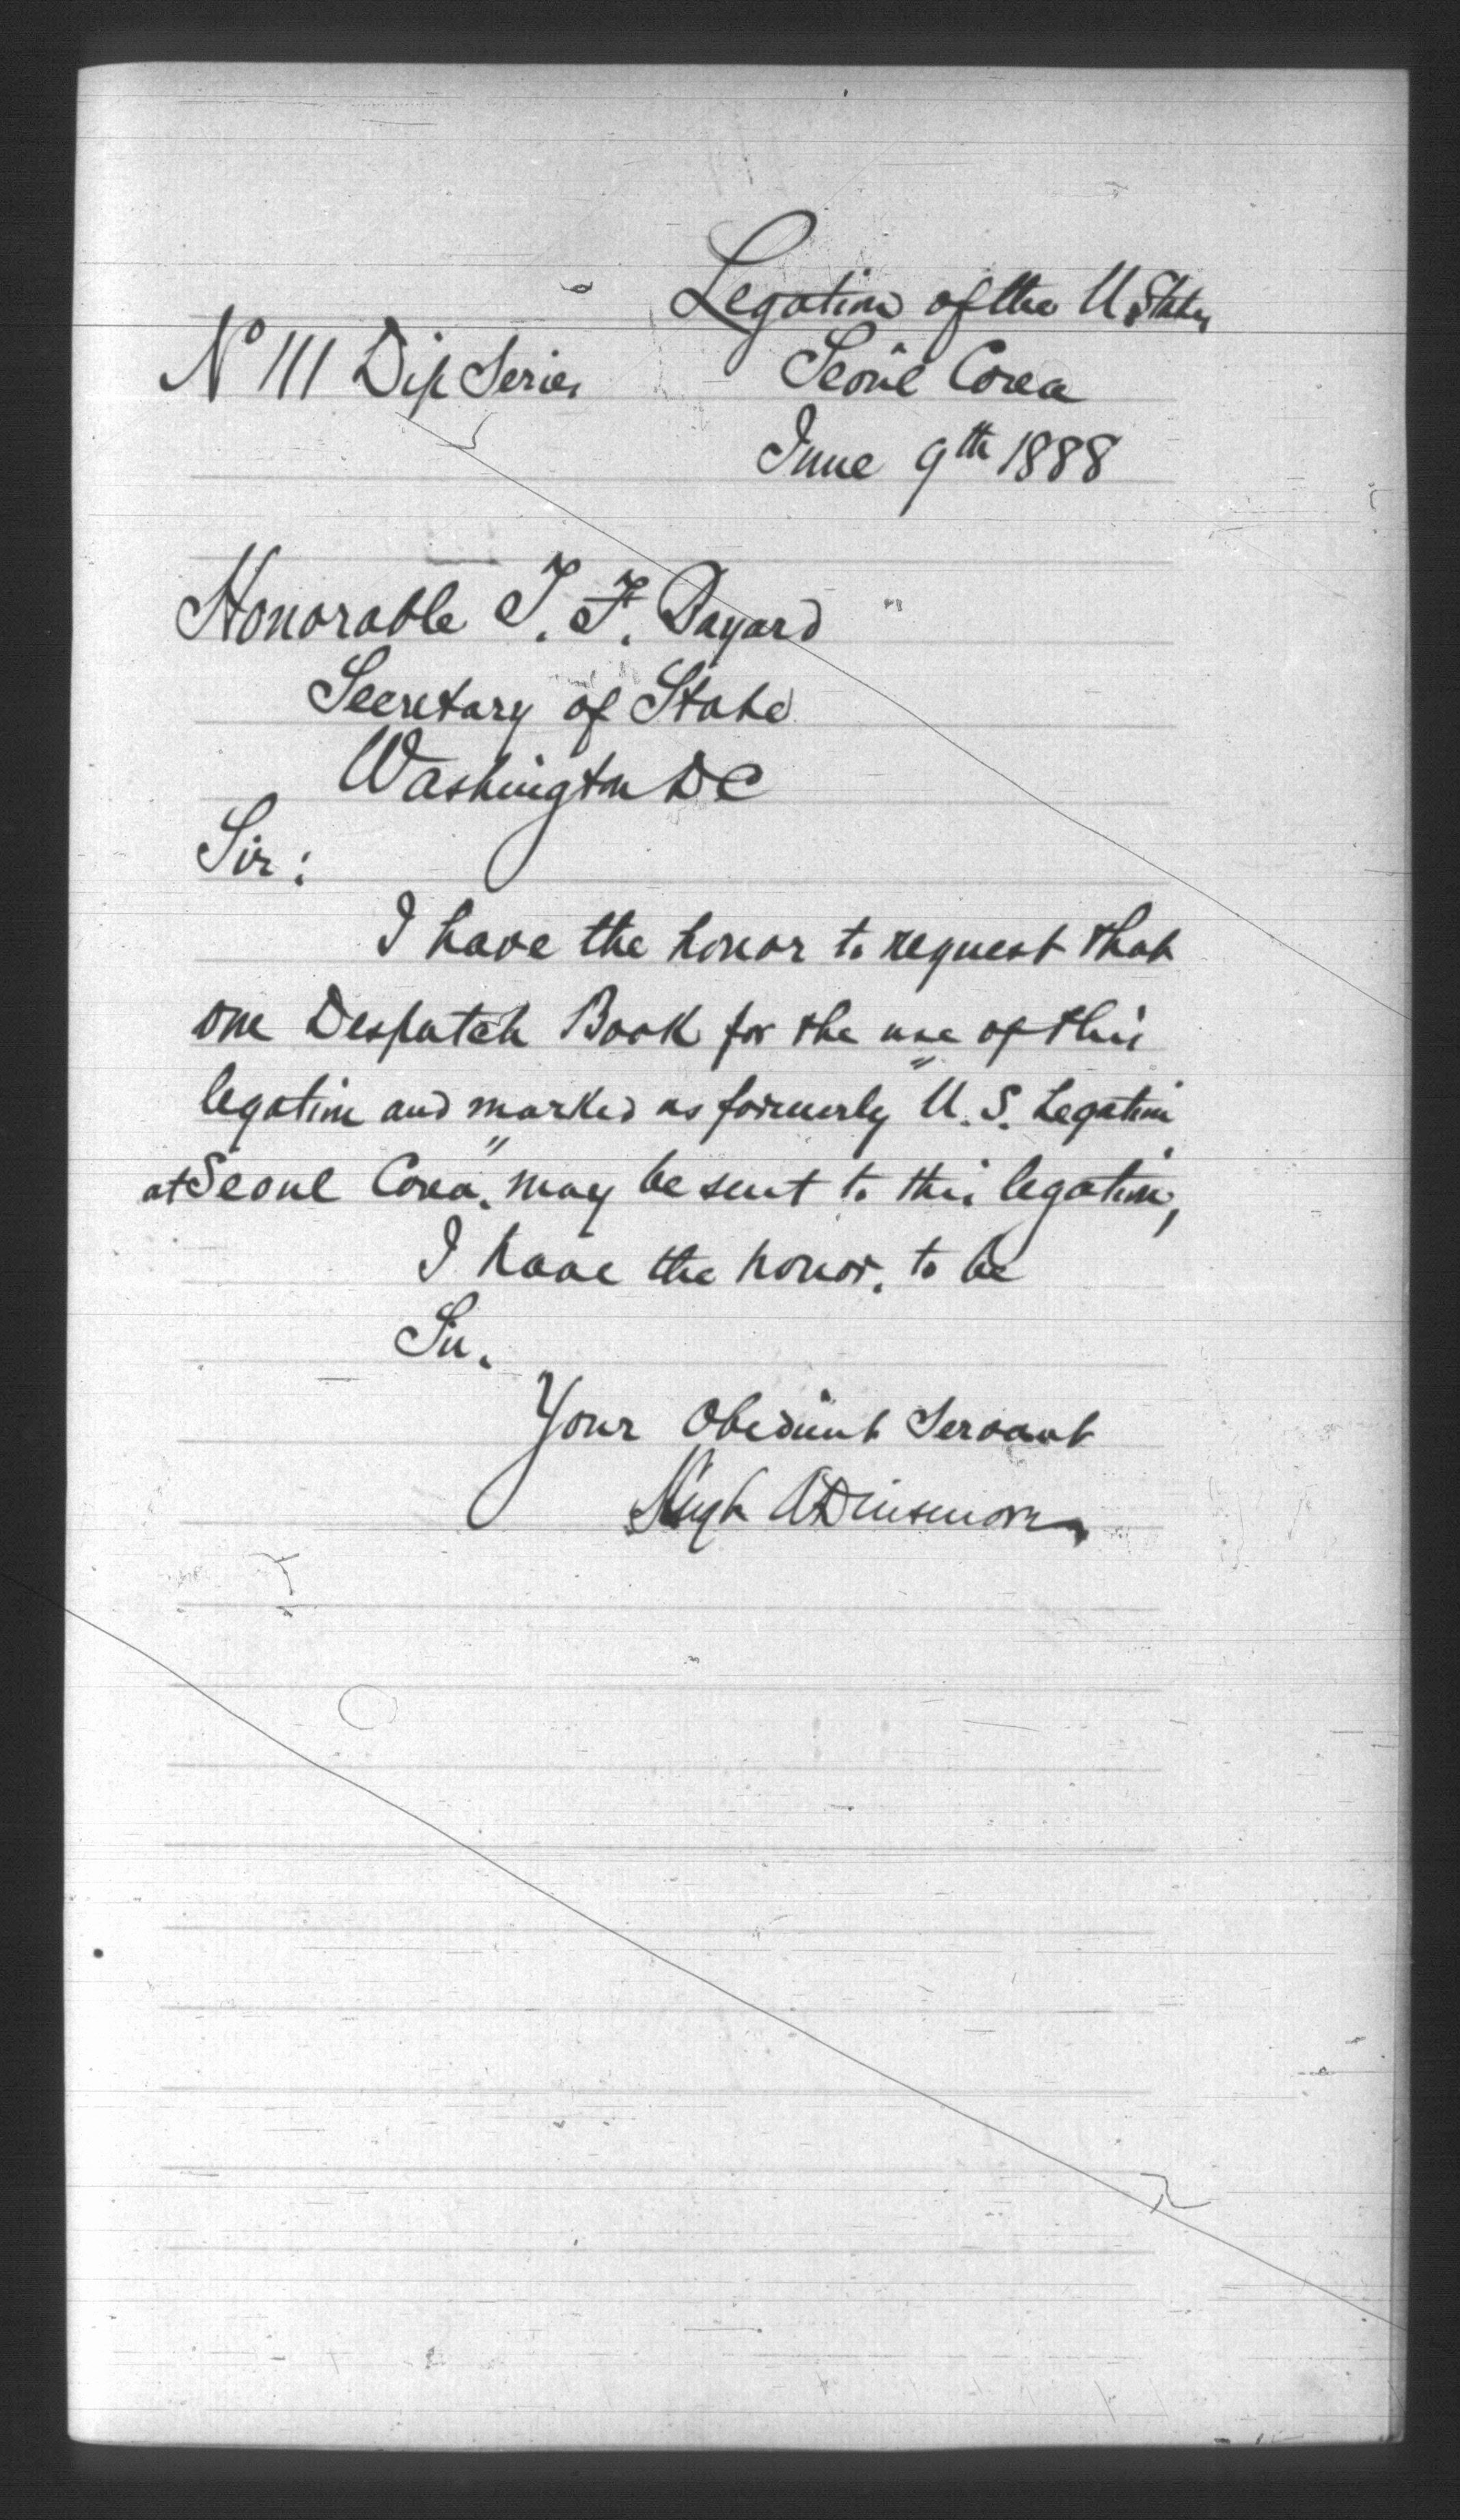 Legation of the U States
No 111 Dip Series
Seoul Corea
June 9th 1888
Honorable T. F. Bayard
Secretary of State
Washington DC
Sir:
I have the honor to request that
one Despatch Book for the use of this
legation and marked as formerly "U. S. Legation
at Seoul Corea", may be sent to this legation,
I have the honor, to be
Sir.
Your Obedient Servant
Hugh A Dinsmore